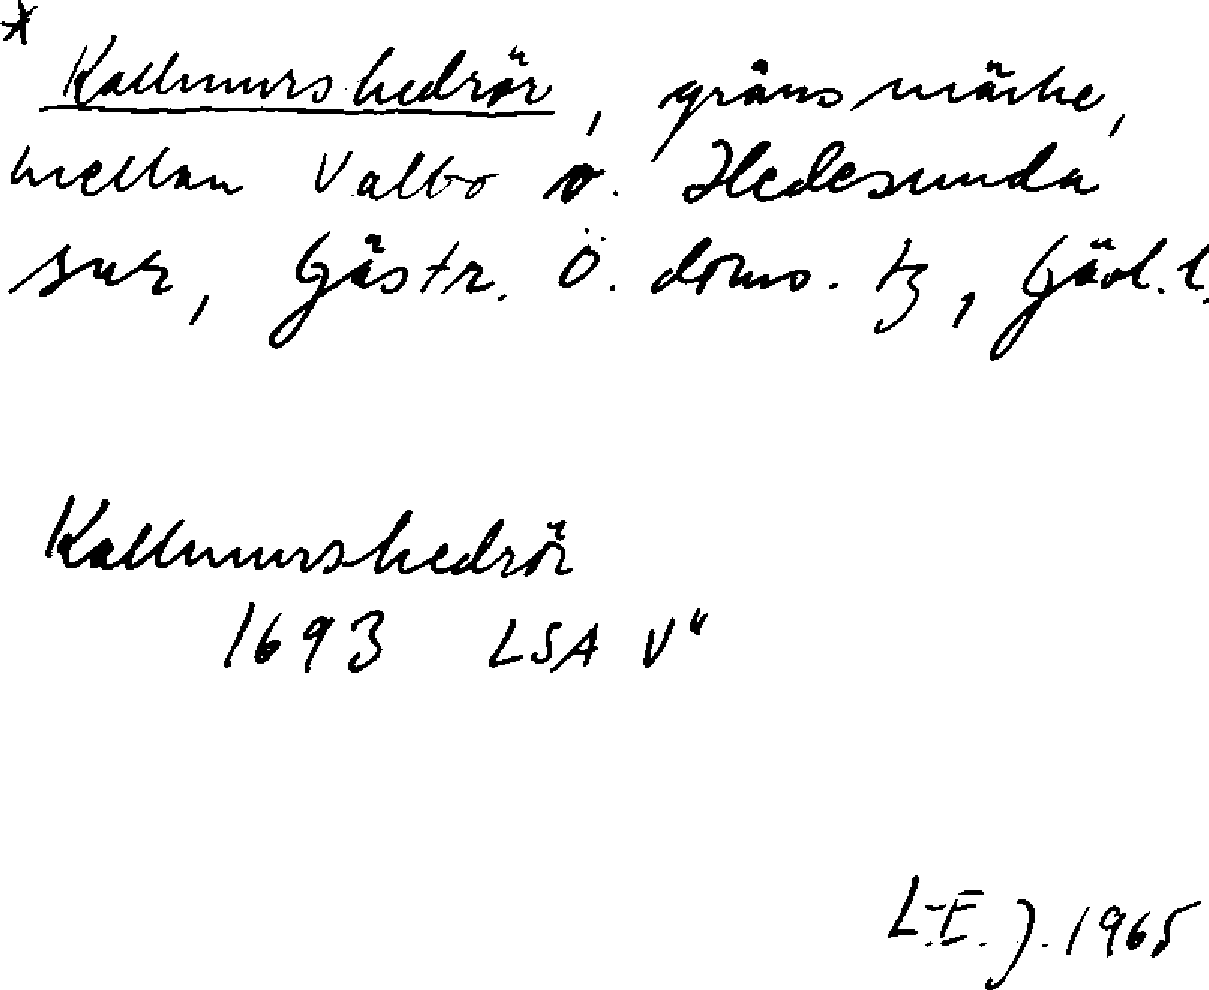 *
Kallmurshedrör, gränsmärke,
mellan Valbo o. Hedesunda
snr, Gästr. Ö. doms. tg, Gävl. l.
Kallmurshedrör
1693 LSA V"
L-E. J. 1965